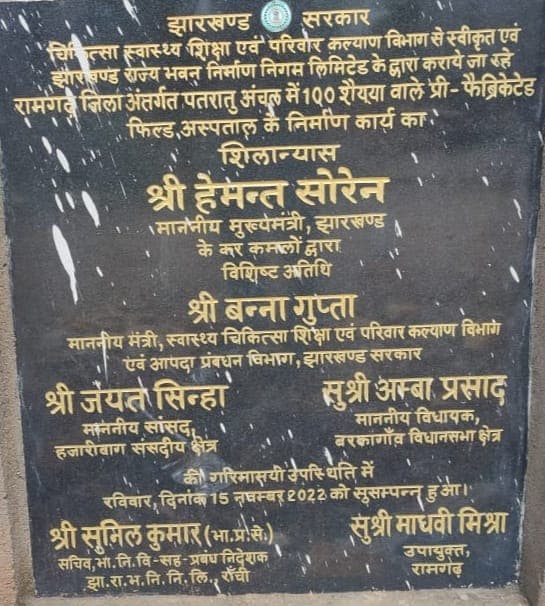 झारखण्ड सरकार
चिकित्सा स्वास्थ्य शिक्षा एवं परिवार कल्याण विभाग से स्वीकृत एवं
झारखण्ड राज्य भवन निर्माण निगम लिमिटेड के द्वारा कराये जा रहे
रामगढ़ जिला अंतर्गत पतरातु अंचल में 100 शैय्या वाले प्री- फैब्रिकेटेड
फिल्ड अस्पताल के निर्माण कार्य का
शिलान्यास
श्री हेमन्त सोरेन
माननीय मुख्यमंत्री, झारखण्ड
के कर कमलों द्वारा
विशिष्ट अतिथि
श्री बन्ना गुप्ता
माननीय मंत्री, स्वास्थ्य चिकित्सा शिक्षा एवं परिवार कल्याण विभाग
एवं आपदा प्रबंधन विभाग, झारखण्ड सरकार
श्री जयंत सिन्हा
माननीय सांसद,
हजारीबाग संसदीय क्षेत्र
सुश्री अम्बा प्रसाद
माननीय विधायक,
बरकागाँव विधानसभा क्षेत्र
की गरिमामयी उपस्थिति में
रविवार, दिनांक 15 नवम्बर 2022 को सुसम्पन्न हुआ।
श्री सुनिल कुमार (भा.प्र.से.)
सचिव,भा.नि.वि-सह-प्रबंध निदेशक
झा.रा.भ.नि.नि.लि., राँची
सुश्री माधवी मिश्रा
उपायुक्त,
रामगढ़